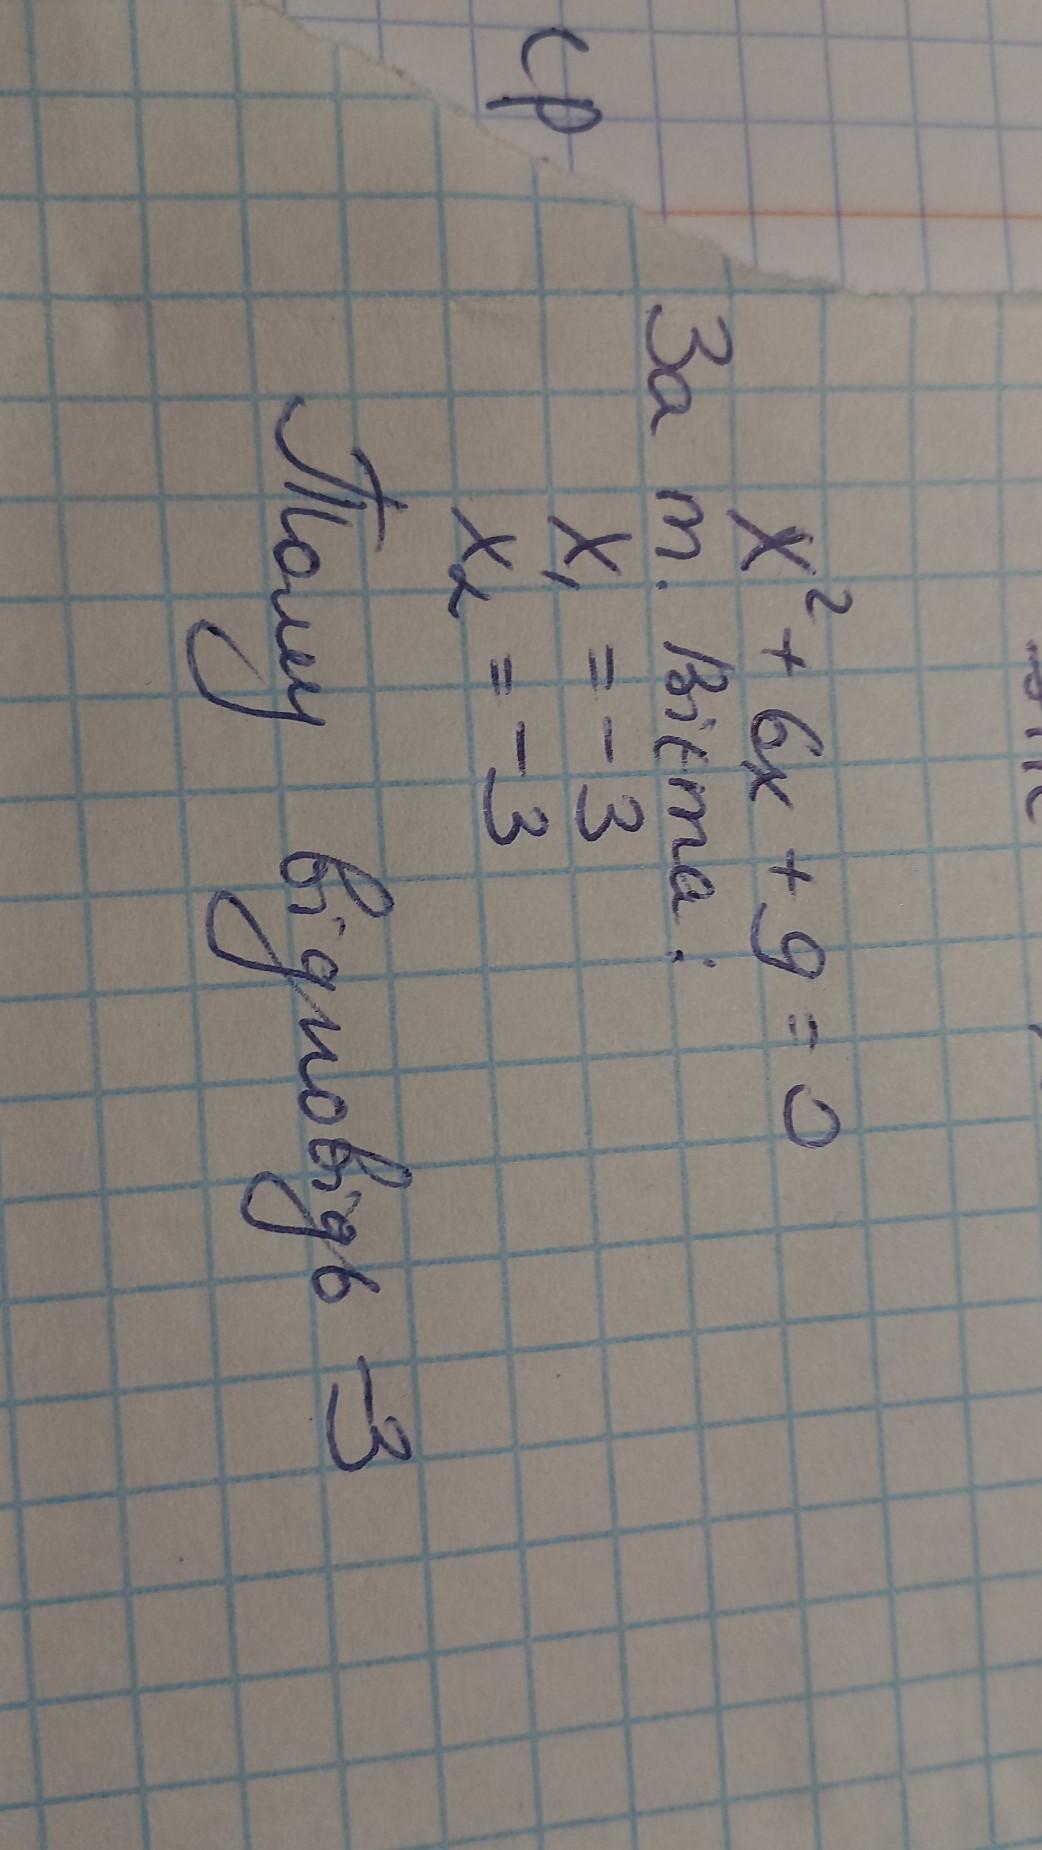 ср
x² + 6x + 9 = 0
За т. Вієта:
x₁ = -3
x₂ = -3
Тому відповідь -3